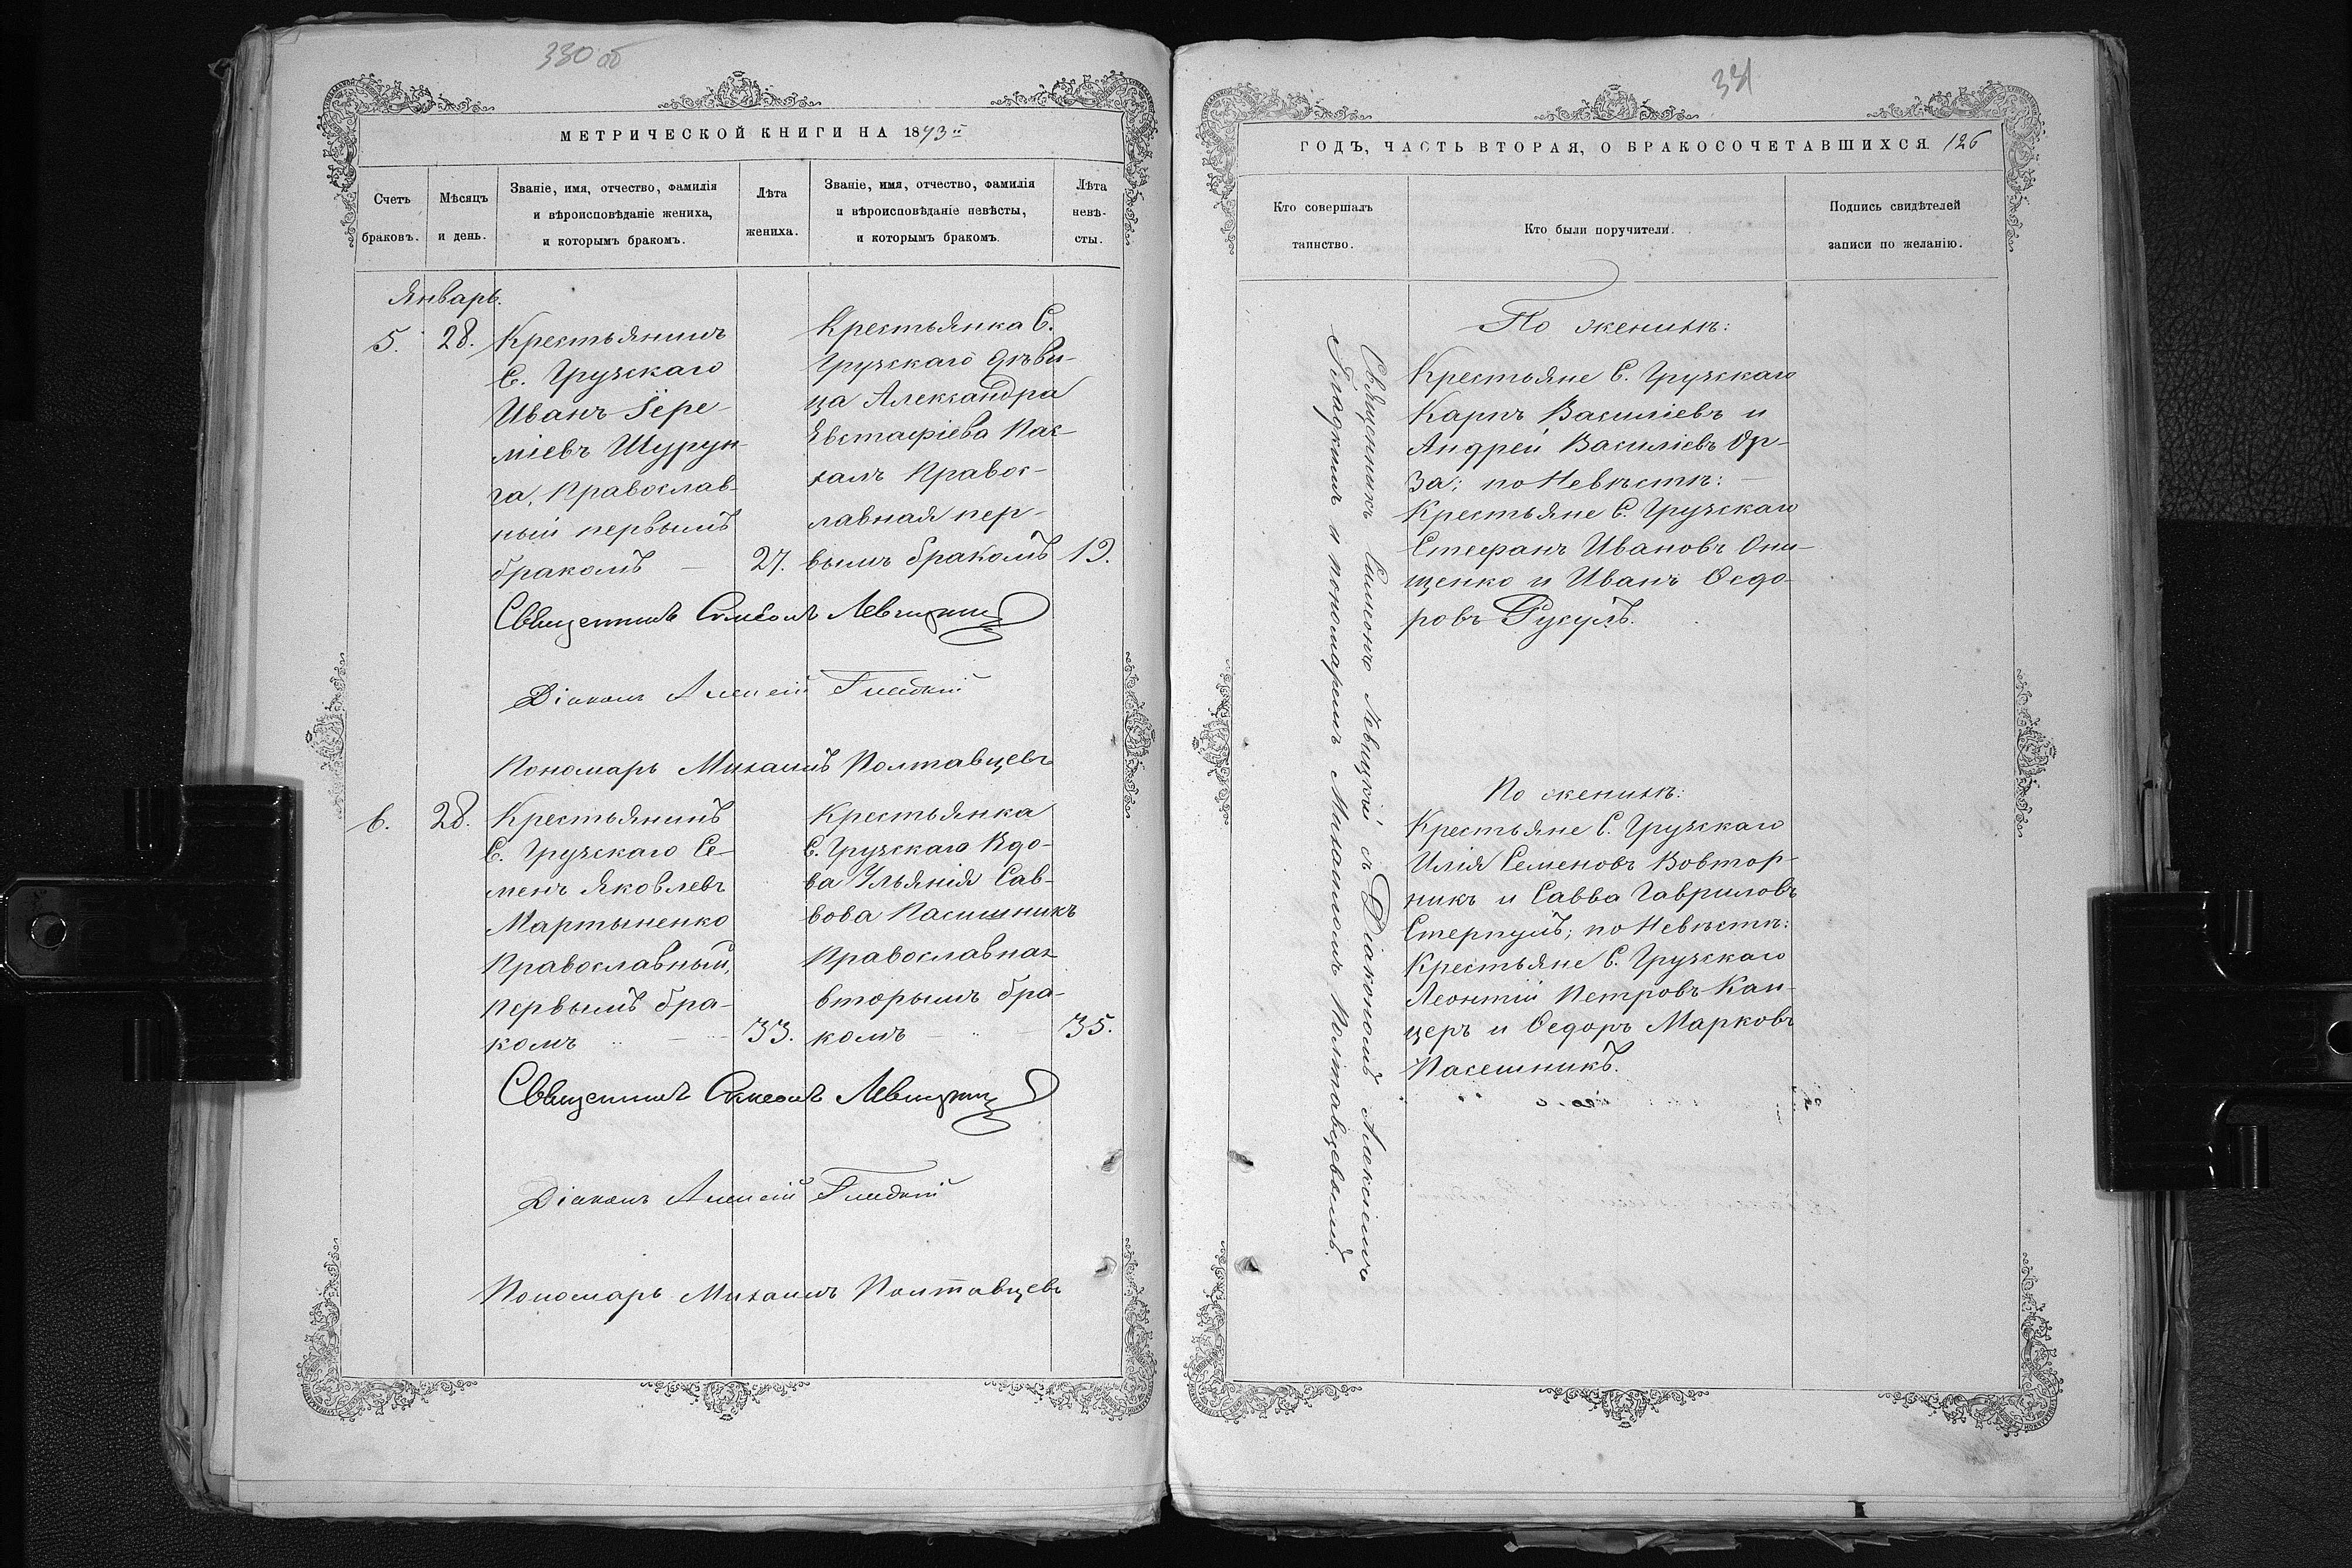 330 об
МЕТРИЧЕСКОЙ КНИГИ НА 1873й
Счетъ
браковъ.
Мѣсяцъ
и день.
Званіе, имя, отчество, фамилія
и вѣроисповѣданіе жениха,
и которымъ бракомъ.
Лѣта
жениха.
Званіе, имя, отчество, фамилія
и вѣроисповѣданіе невѣсты,
и которымъ бракомъ.
Лѣта
невѣ-
сты.
Январь.
5.
28.
Крестьянинъ
С. Грузскаго
Иванъ Іере-
міевъ Шурун-
га, Православ-
ный первымъ
бракомъ
27.
Крестьянка С.
Грузскаго Дѣви-
ца Александра
Евстафіева Пас-
халъ Правос-
лавная пер-
вымъ бракомъ
19.
Священникъ Симеонъ Левицкій
Діаконъ Алексій Гладкій
Пономарь Михаилъ Полтавцевъ
6.
28.
Крестьянинъ
С. Грузскаго Се-
менъ Яковлевъ
Мартыненко
Православный,
первымъ бра-
комъ
33.
Крестьянка
С. Грузскаго Вдо-
ва Ульянія Сав-
вова Пасишникъ
Православная
вторымъ бра-
комъ
35.
Священникъ Симеонъ Левицкій
Діаконъ Алексій Гладкій
Пономарь Михаилъ Полтавцевъ
331
ГОДЪ, ЧАСТЬ ВТОРАЯ, О БРАКОСОЧЕТАВШИХСЯ 126
Кто совершалъ
таинство.
Кто были поручители.
Подпись свидѣтелей
записи по желанію.
Священникъ Симеонъ Левицкій съ Діакономъ Алексіемъ
Гладкимъ и пономаремъ Михаиломъ Полтавцевымъ.
По женихѣ:
Крестьяне С. Грузскаго
Карпъ Василіевъ и
Андрей Василіевъ Др-
за; по Невѣстѣ:
Крестьяне С. Грузскаго
Стефанъ Ивановъ Они-
щенко и Иванъ Ѳедо-
ровъ Рукулъ.
По женихѣ:
Крестьяне С. Грузскаго
Илія Семеновъ Вовтор-
никъ и Савва Гавриловъ
Стерпулъ; по Невѣстѣ:
Крестьяне С. Грузскаго
Леонтій Петровъ Кан-
церъ и Ѳедоръ Марковъ
Пасешникъ.